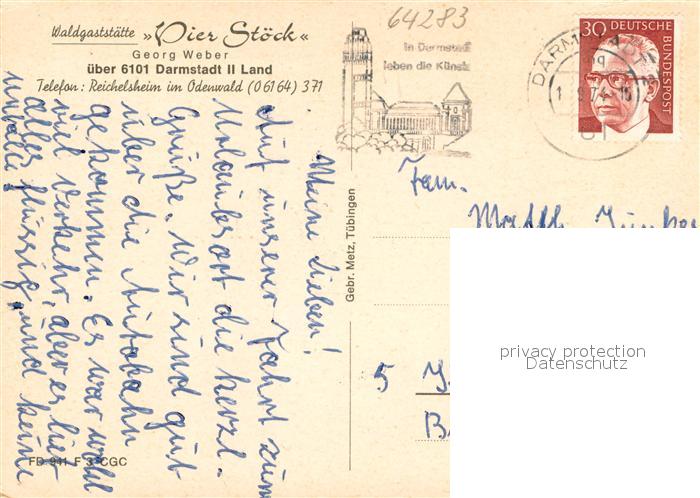 Waldgaststätte »Vier Stöck«
Georg Weber
über 6101 Darmstadt II Land
Telefon: Reichelsheim im Odenwald (0 61 64) 3 71
64283
in Darmstadt
leben die Künste
DARMSTADT
30 DEUTSCHE
BUNDESPOST
Meine Lieben!
Auf unserer Fahrt zum
Urlaubsort die herzl.
Grüße. Wir sind gut
über die Autobahn
gekommen. Es war wohl
viel Verkehr, aber es lief
alles flüssig und keine
Unfälle
Fam.
5
Gebr. Metz, Tübingen
FD 941 F 3 CGC
privacy protection
Datenschutz